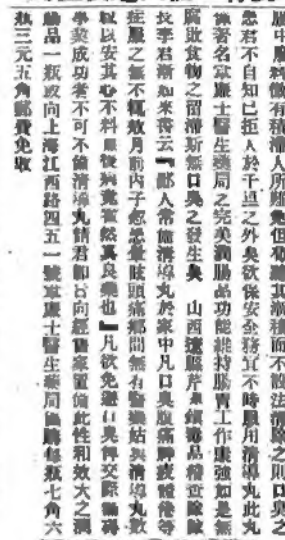 腸中廢料微有積滯人所難免但積聽其滯積而不設法清除之則口臭之
患君不自知已拒人於千里之外矣欲保安全務宜不時服用清導丸此丸
係著名韋廉士醫生藥局之完美潤腸品功能維持腸胃工作康強如是無
腐敗食物之留滯斯無口臭之發生矣 山西遼縣芹泉鎮菸品稽查
長李君斯如來書云『鄙人常備清導丸於家中凡口臭腹痛脾疲體倦等
症服之無不輒效月前內子忽患暈眩頭痛鄉間無有醫處姑與清導丸數
粒以安其心不料服後病竟霍然眞良藥也』凡欲免避口臭俾交際隨
事業成功者不可不備清導丸請君卽台向經售家置備此性和效大之瀉
腸品一瓶或向上海江西路四五一號韋廉士醫生藥局函購每瓶七角六
瓶三元五角郵費免收